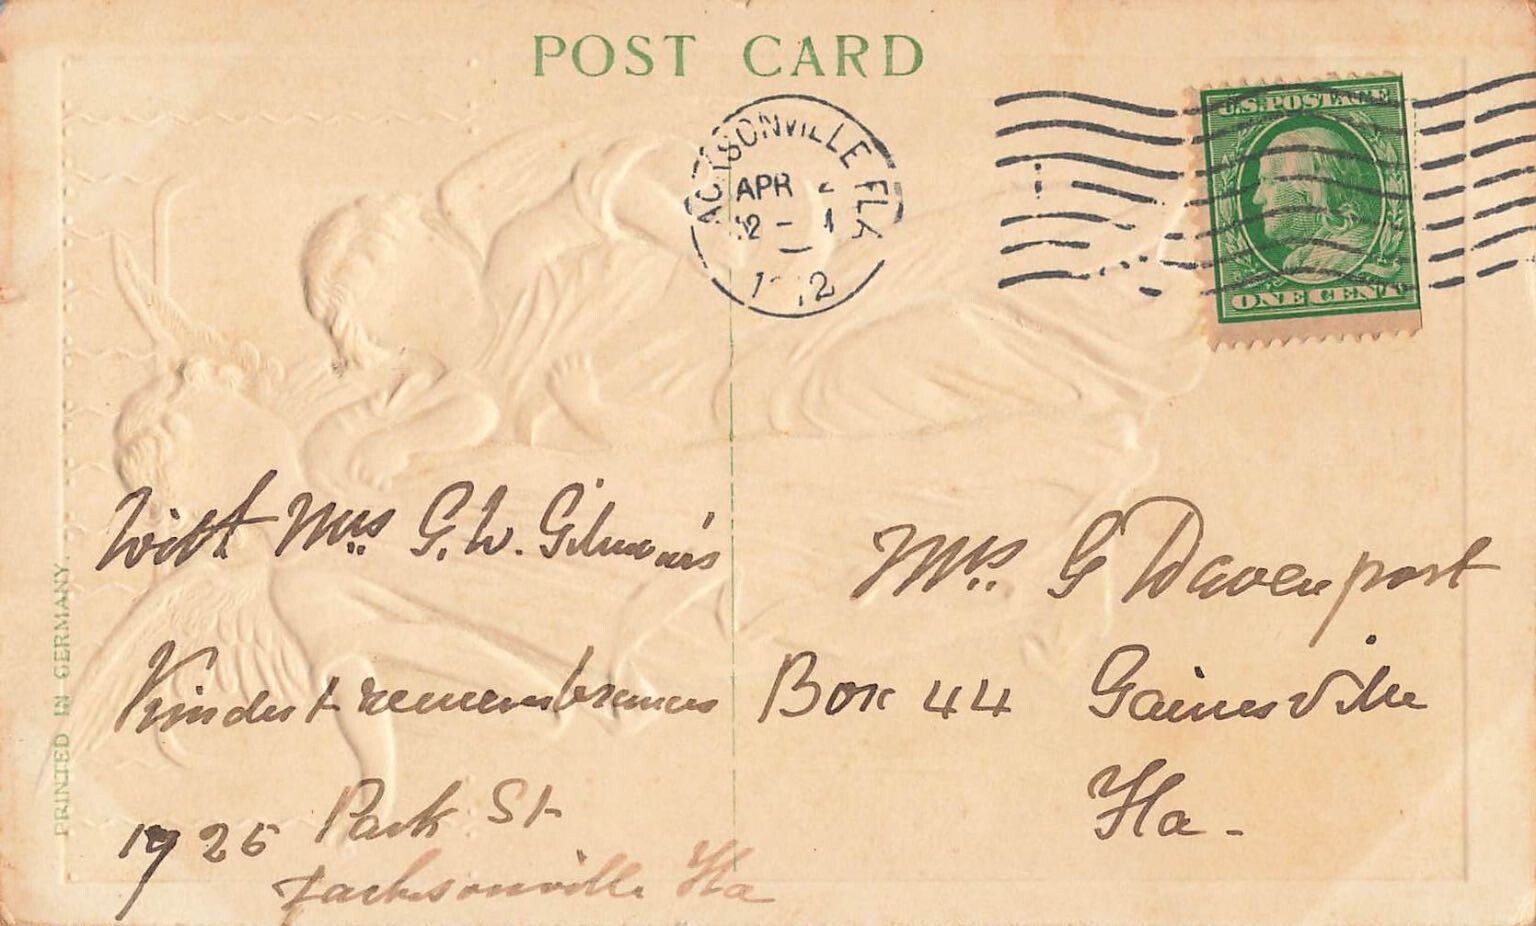 POST CARD
JACKSONVILLE FLA
APR 2
12 -
1912
U.S. POSTAGE
ONE CENT
With Mrs G. W. Gilmour's
Kindest remembrances
1925 Park St
Jacksonville Fla
Mrs G Davenport
Box 44 Gainesville
Fla -
PRINTED IN GERMANY.